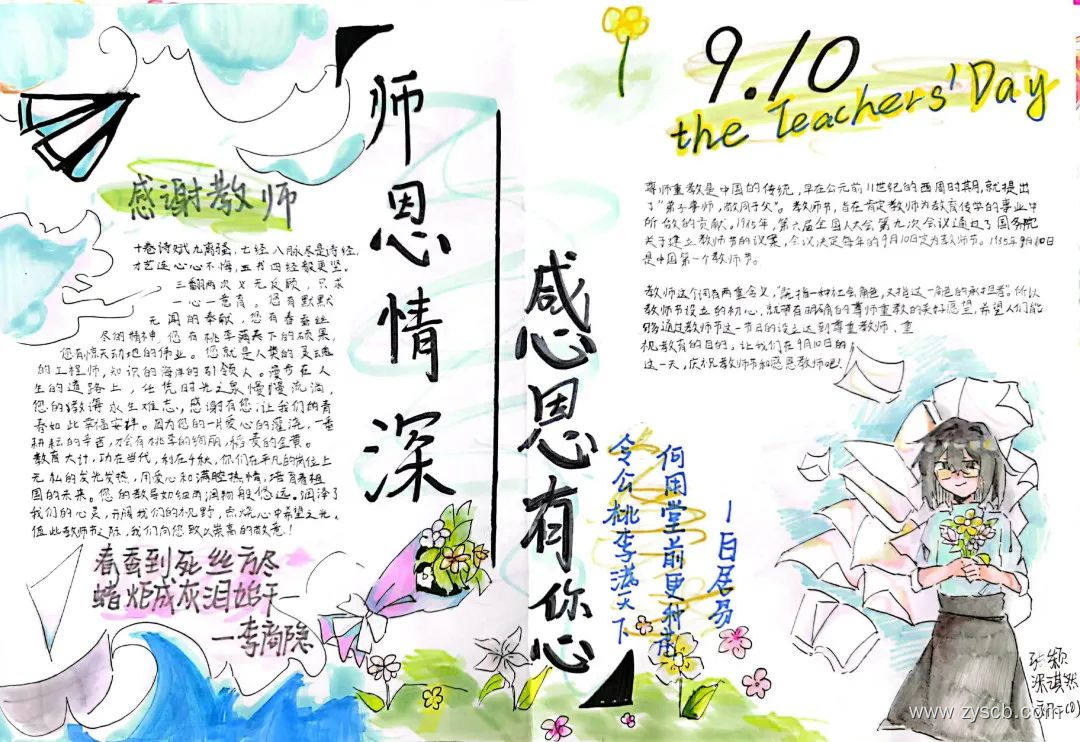 师恩情深
感恩有你心
感谢教师
十卷诗赋九离骚,七经八脉尽是诗经,
才艺连心心不悔,五书四经教更坚。
三翻两次义无反顾,只求
一心一意育。您有默默
无闻的奉献,您有春蚕丝
尽的精神,您有桃李满天下的硕果,
您有惊天动地的伟业。您就是人类的灵魂
的工程师,知识的海洋的引领人。漫步在人
生的道路上,任凭时光之泉慢慢流淌,
您的教诲永生难忘,感谢有您,让我们的青
春如此幸福安祥。因为您的一片爱心的灌浇,一番
耕耘的辛苦,才会有桃李的绚丽,稻麦的金黄。
教育大计,功在当代,利在千秋,你们在平凡的岗位上
无私的发光发热,用爱心和满腔热情,培育着祖
国的未来。您的教导如细雨润物般悠远。润泽了
我们的心灵,开阔我们的视野,点燃心中希望之光,
值此教师节之际,我们向您致以崇高的敬意!
春蚕到死丝方尽
蜡炬成灰泪始干
—李商隐
9.10
the Teachers' Day
尊师重教是中国的传统,早在公元前11世纪的西周时期,就提出
了“弟子事师,敬同于父”。教师节,旨在肯定教师为教育传学的事业中
所做的贡献。1985年,第六届全国人大会第九次会议通过了国务院
关于建立教师节的议案,会议决定每年的9月10日定为教师节。1985年9月10日
是中国第一个教师节。
教师这个词有两重含义,“既指一种社会角色,又指这一角色的承担者”,所以
教师节设立的初心,就带有明确的尊师重教的美好愿望,希望人们能
够通过教师节这一节日的设立达到尊重教师、重
视教育的目的。让我们在9月10日的
这一天,庆祝教师节和感恩教师吧!
令公桃李满天下
何用堂前更种

—白居易
www.zyscb.com